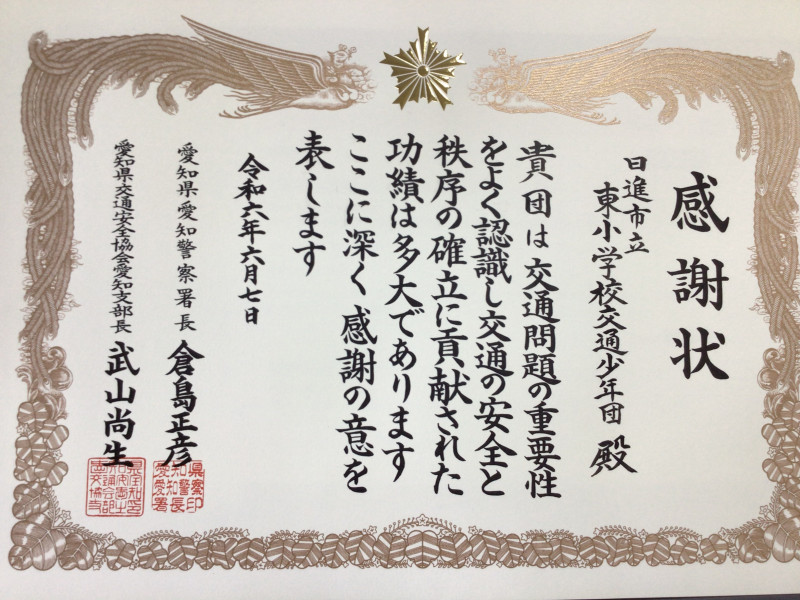 感謝状
日進市立
東小学校交通少年団 殿
貴団は交通問題の重要性
をよく認識し交通の安全と
秩序の確立に貢献された
功績は多大であります
ここに深く感謝の意を
表します
令和六年六月七日
愛知県愛知警察署長 倉島正彦
愛知県交通安全協会愛知支部長 武山尚生